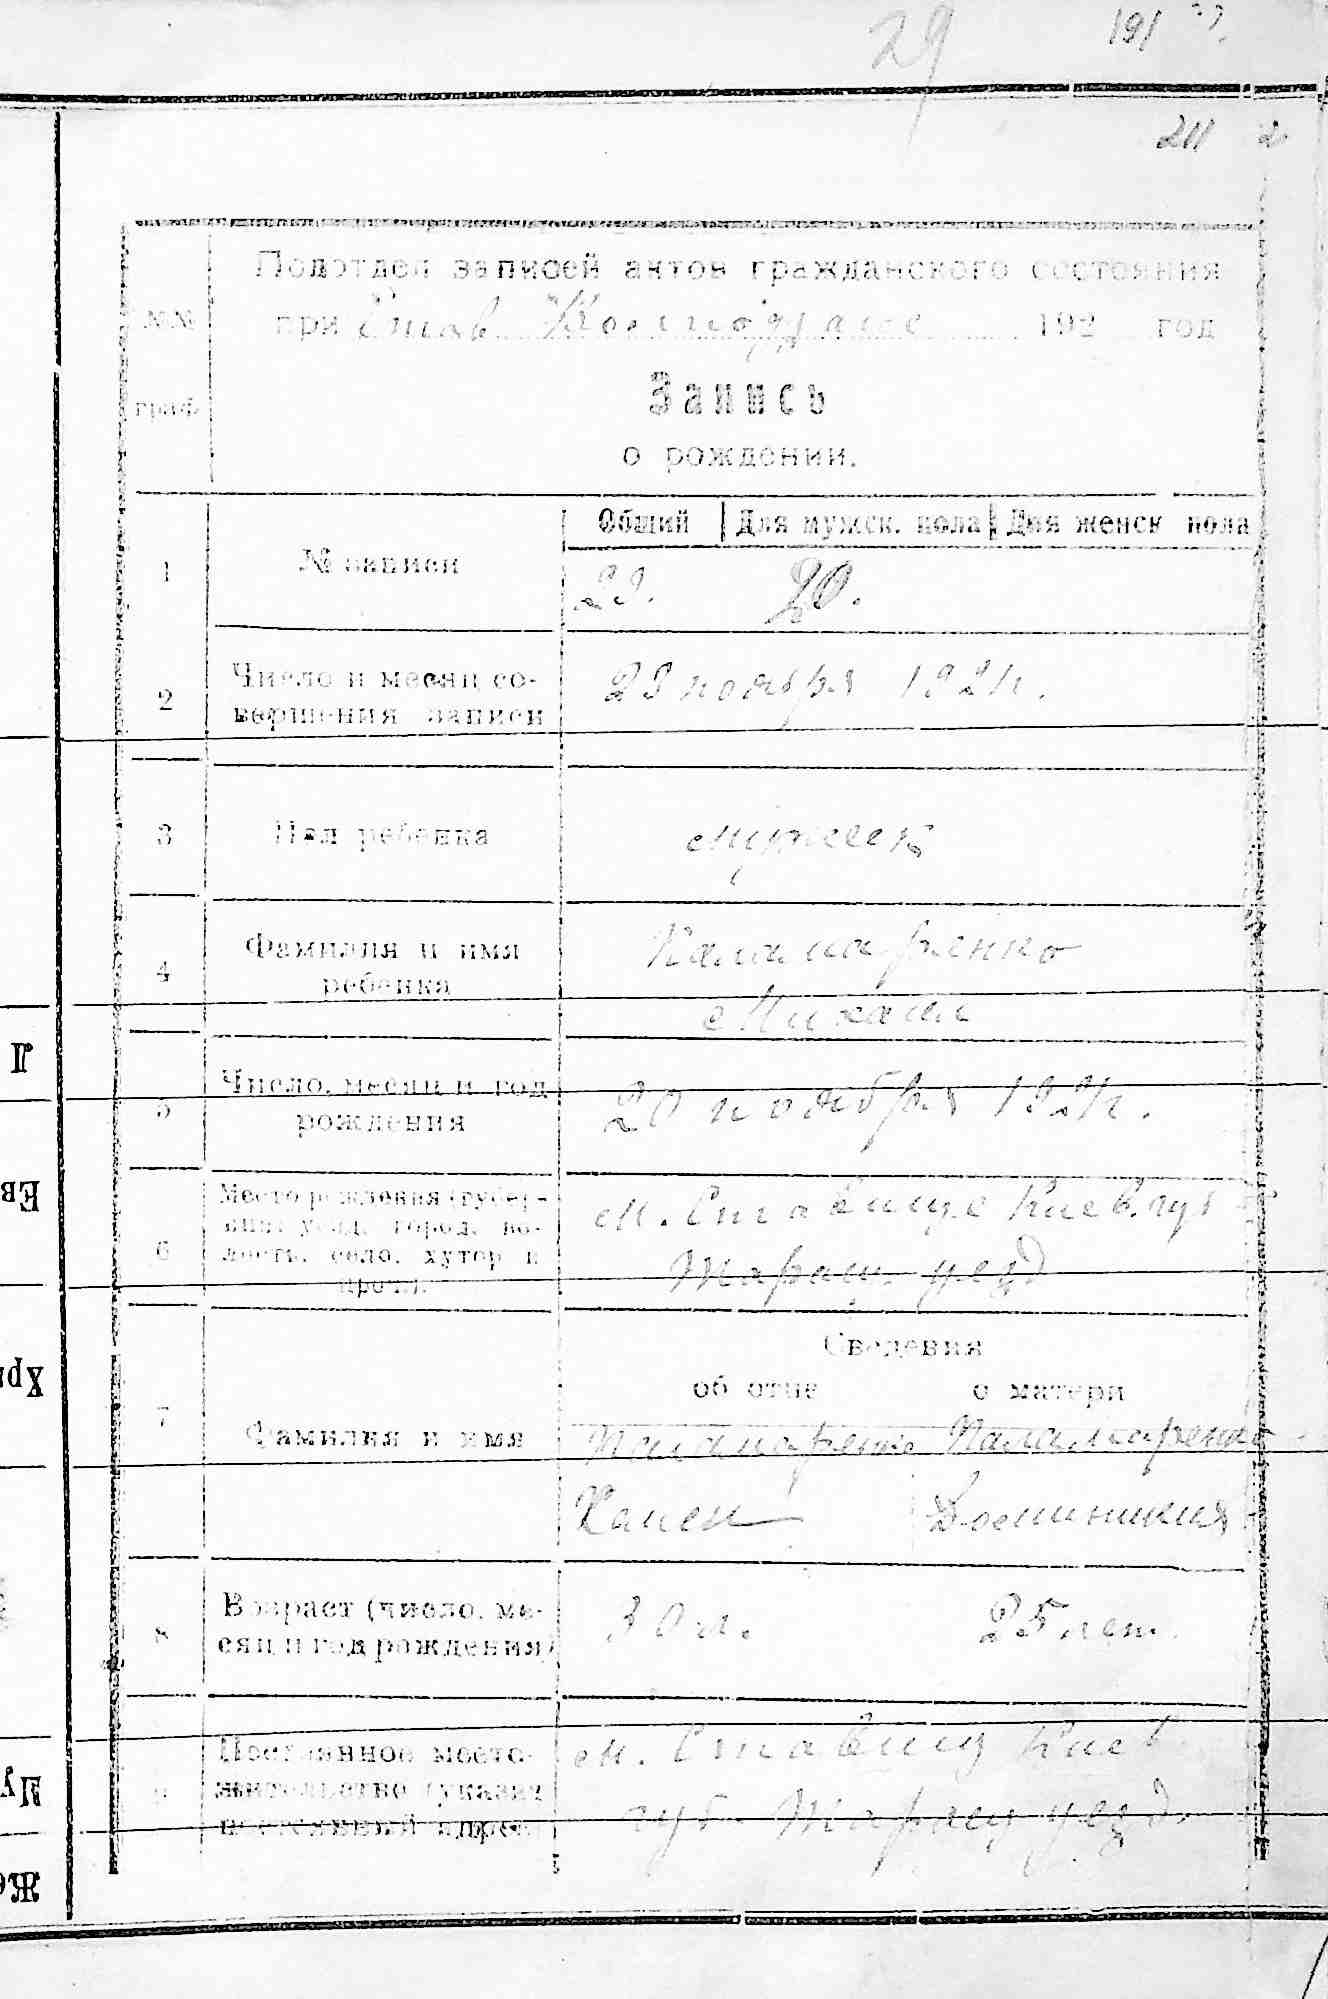 29
191
211 2
Подотдел записей актов гражданского состояния
№№ при Став 192 год
граф
Запись
о рождении.
Общий Для мужск. пола Для женск пола
1 № записи
23. 20.
2 Число и месяц со-
вершения записи
23 ноября 192 г.
3 Пол ребенка мужеск
4 Фамилия и имя
ребенка
Паламаренко
Михаил
5 Число, месяц и год
рождения
20 ноября 192 г.
6 Место рождения (губер-
ния, уезд, город, во-
лость, село, хутор и
проч.).
м. Ставище Киев. губ
Таращ. уезд
Сведения
об отце о матери
7 Фамилия и имя
Паламаренко Паламаренко
8 Возраст (число, ме-
сяц и год рождения)
30 л. 25 лет.
9 Постоянное место-
жительство (указать
постоянный адрес)
м. Ставищ Киев
губ. Таращ уезд.
Л
Ев
Хри
Лу
Же